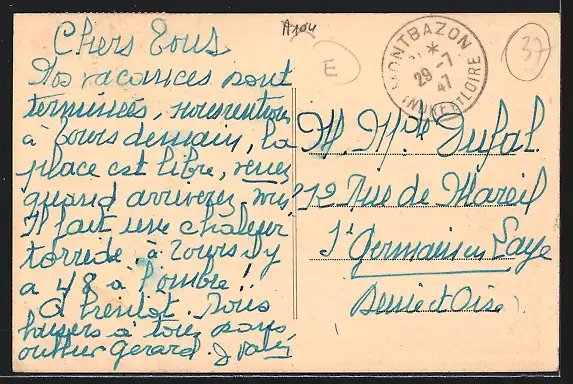 Chers Tous
Nos vacances sont
terminées, nous rentrons
à Tours demain, la
place est libre, venez
quand arriverez-vous?
Il fait une chaleur
torride, à Tours il y
a 48 à l'ombre!!
A bientôt. Nous
baisers à tous sans
oublier Gérard.
A104
E
37
MONTBAZON
29-7
47
INDRE ET LOIRE
M. Mde Dufal.
72 Rue de Mareil
St Germain en Laye
Seine et Oise